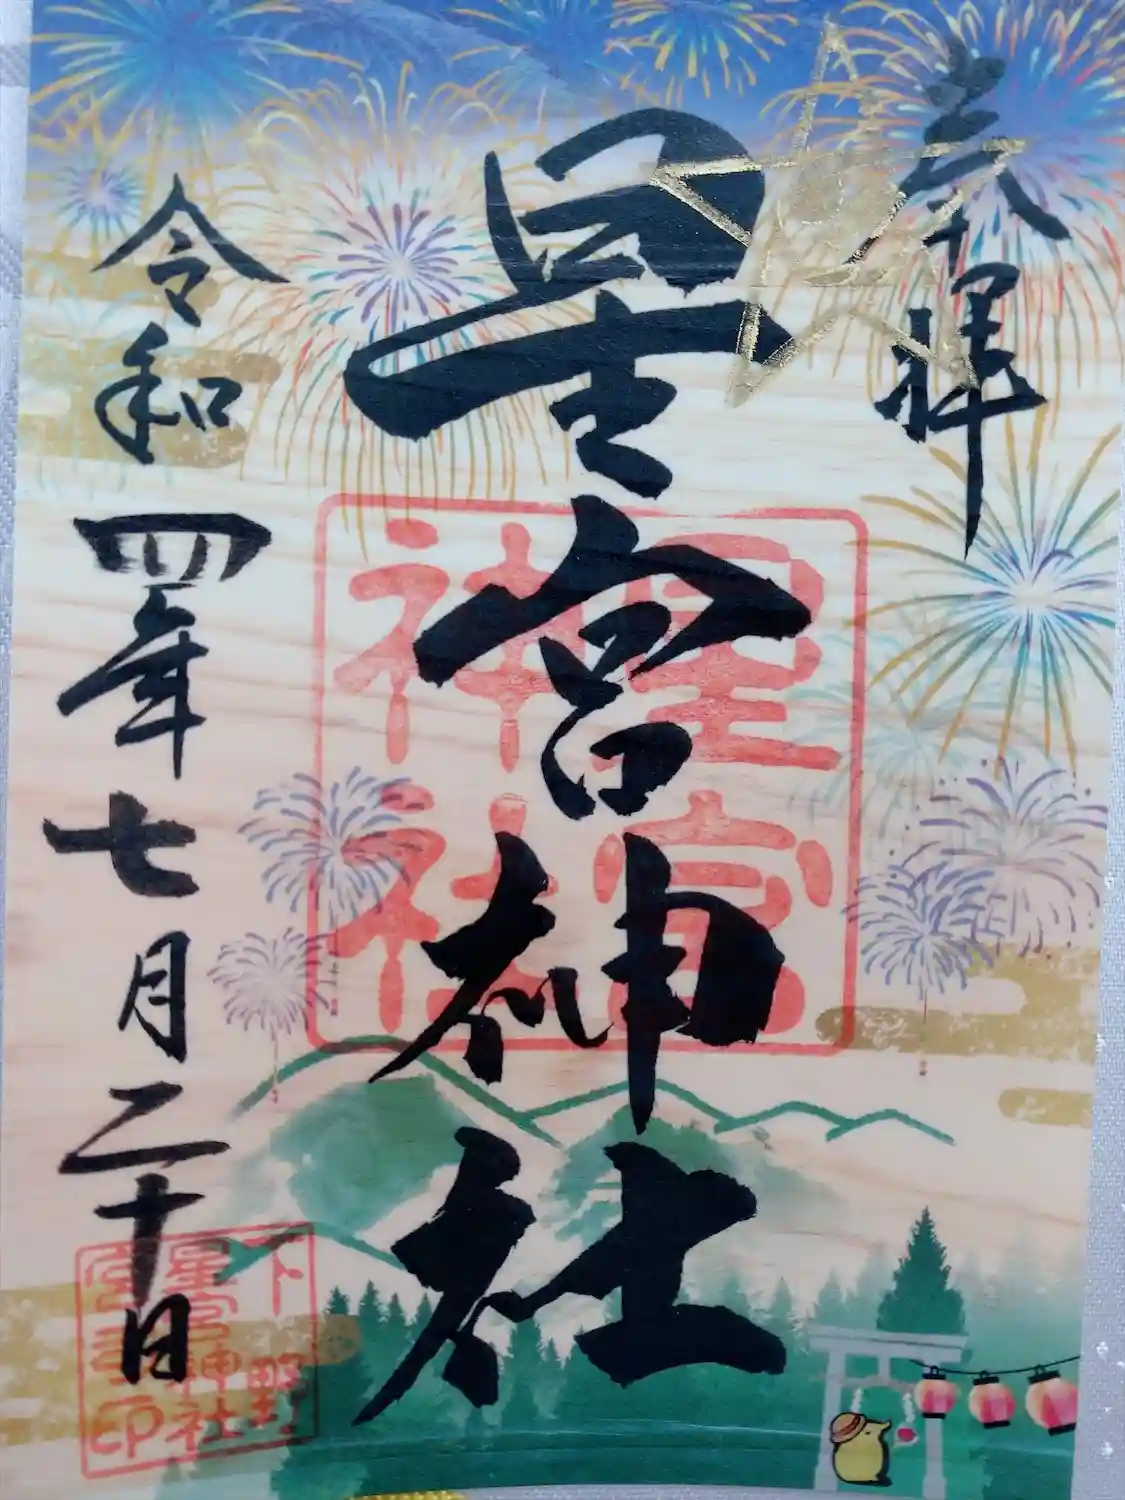 奉拝
星宮神社
星宮
神社
令和四年七月二十日
下野
星宮神社
宮司印